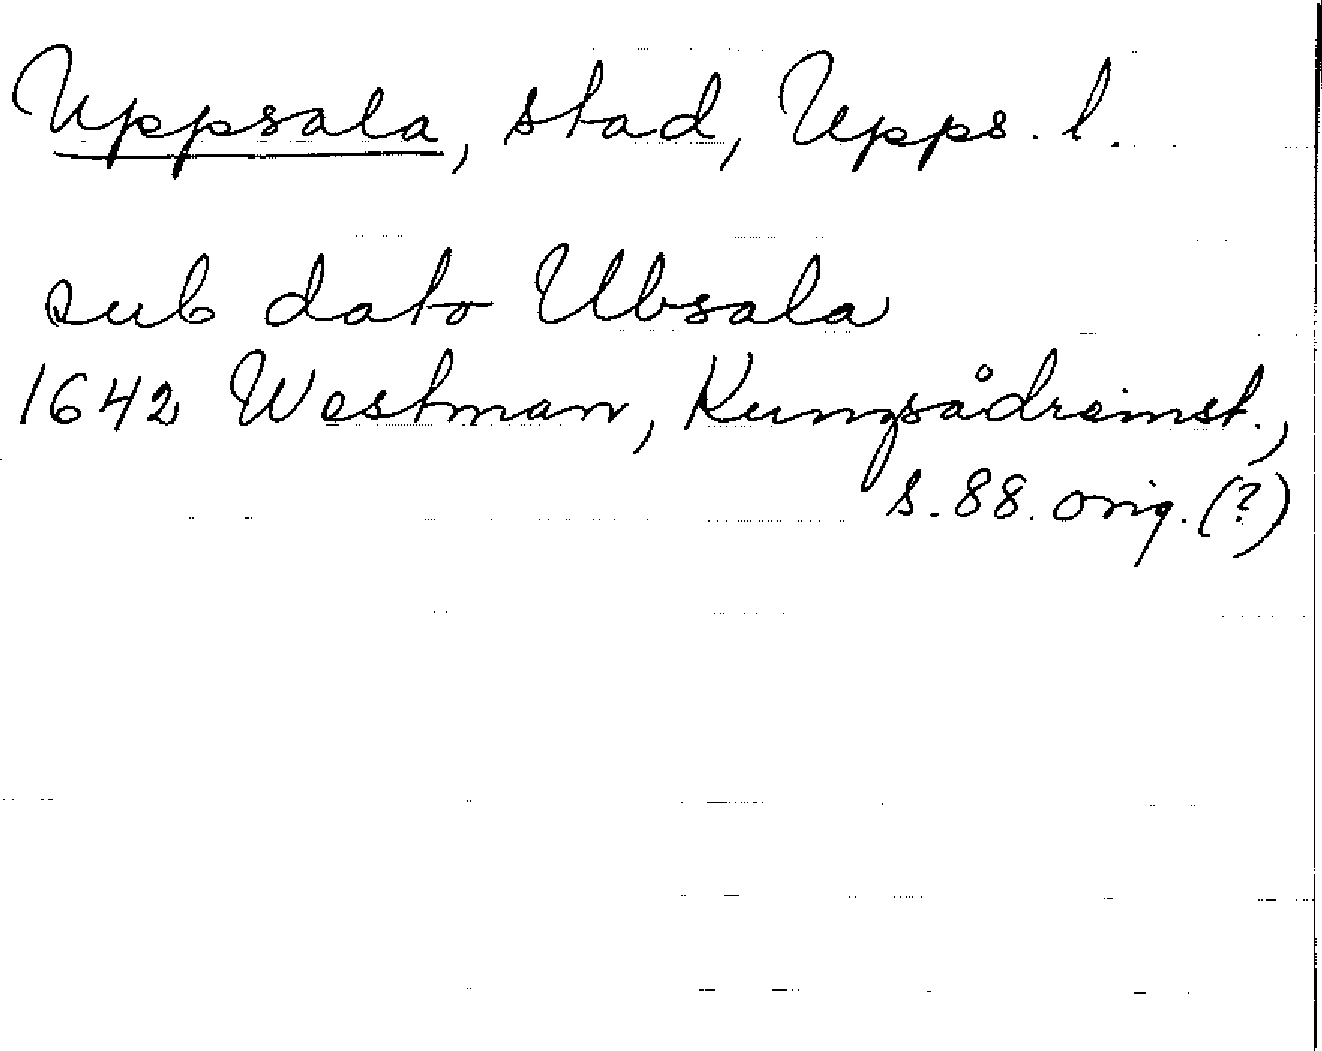 Uppsala, stad, Upps. l.
sub dato Ubsala
1642 Westman, Kungsådreinst.,
s. 88. orig. (?)